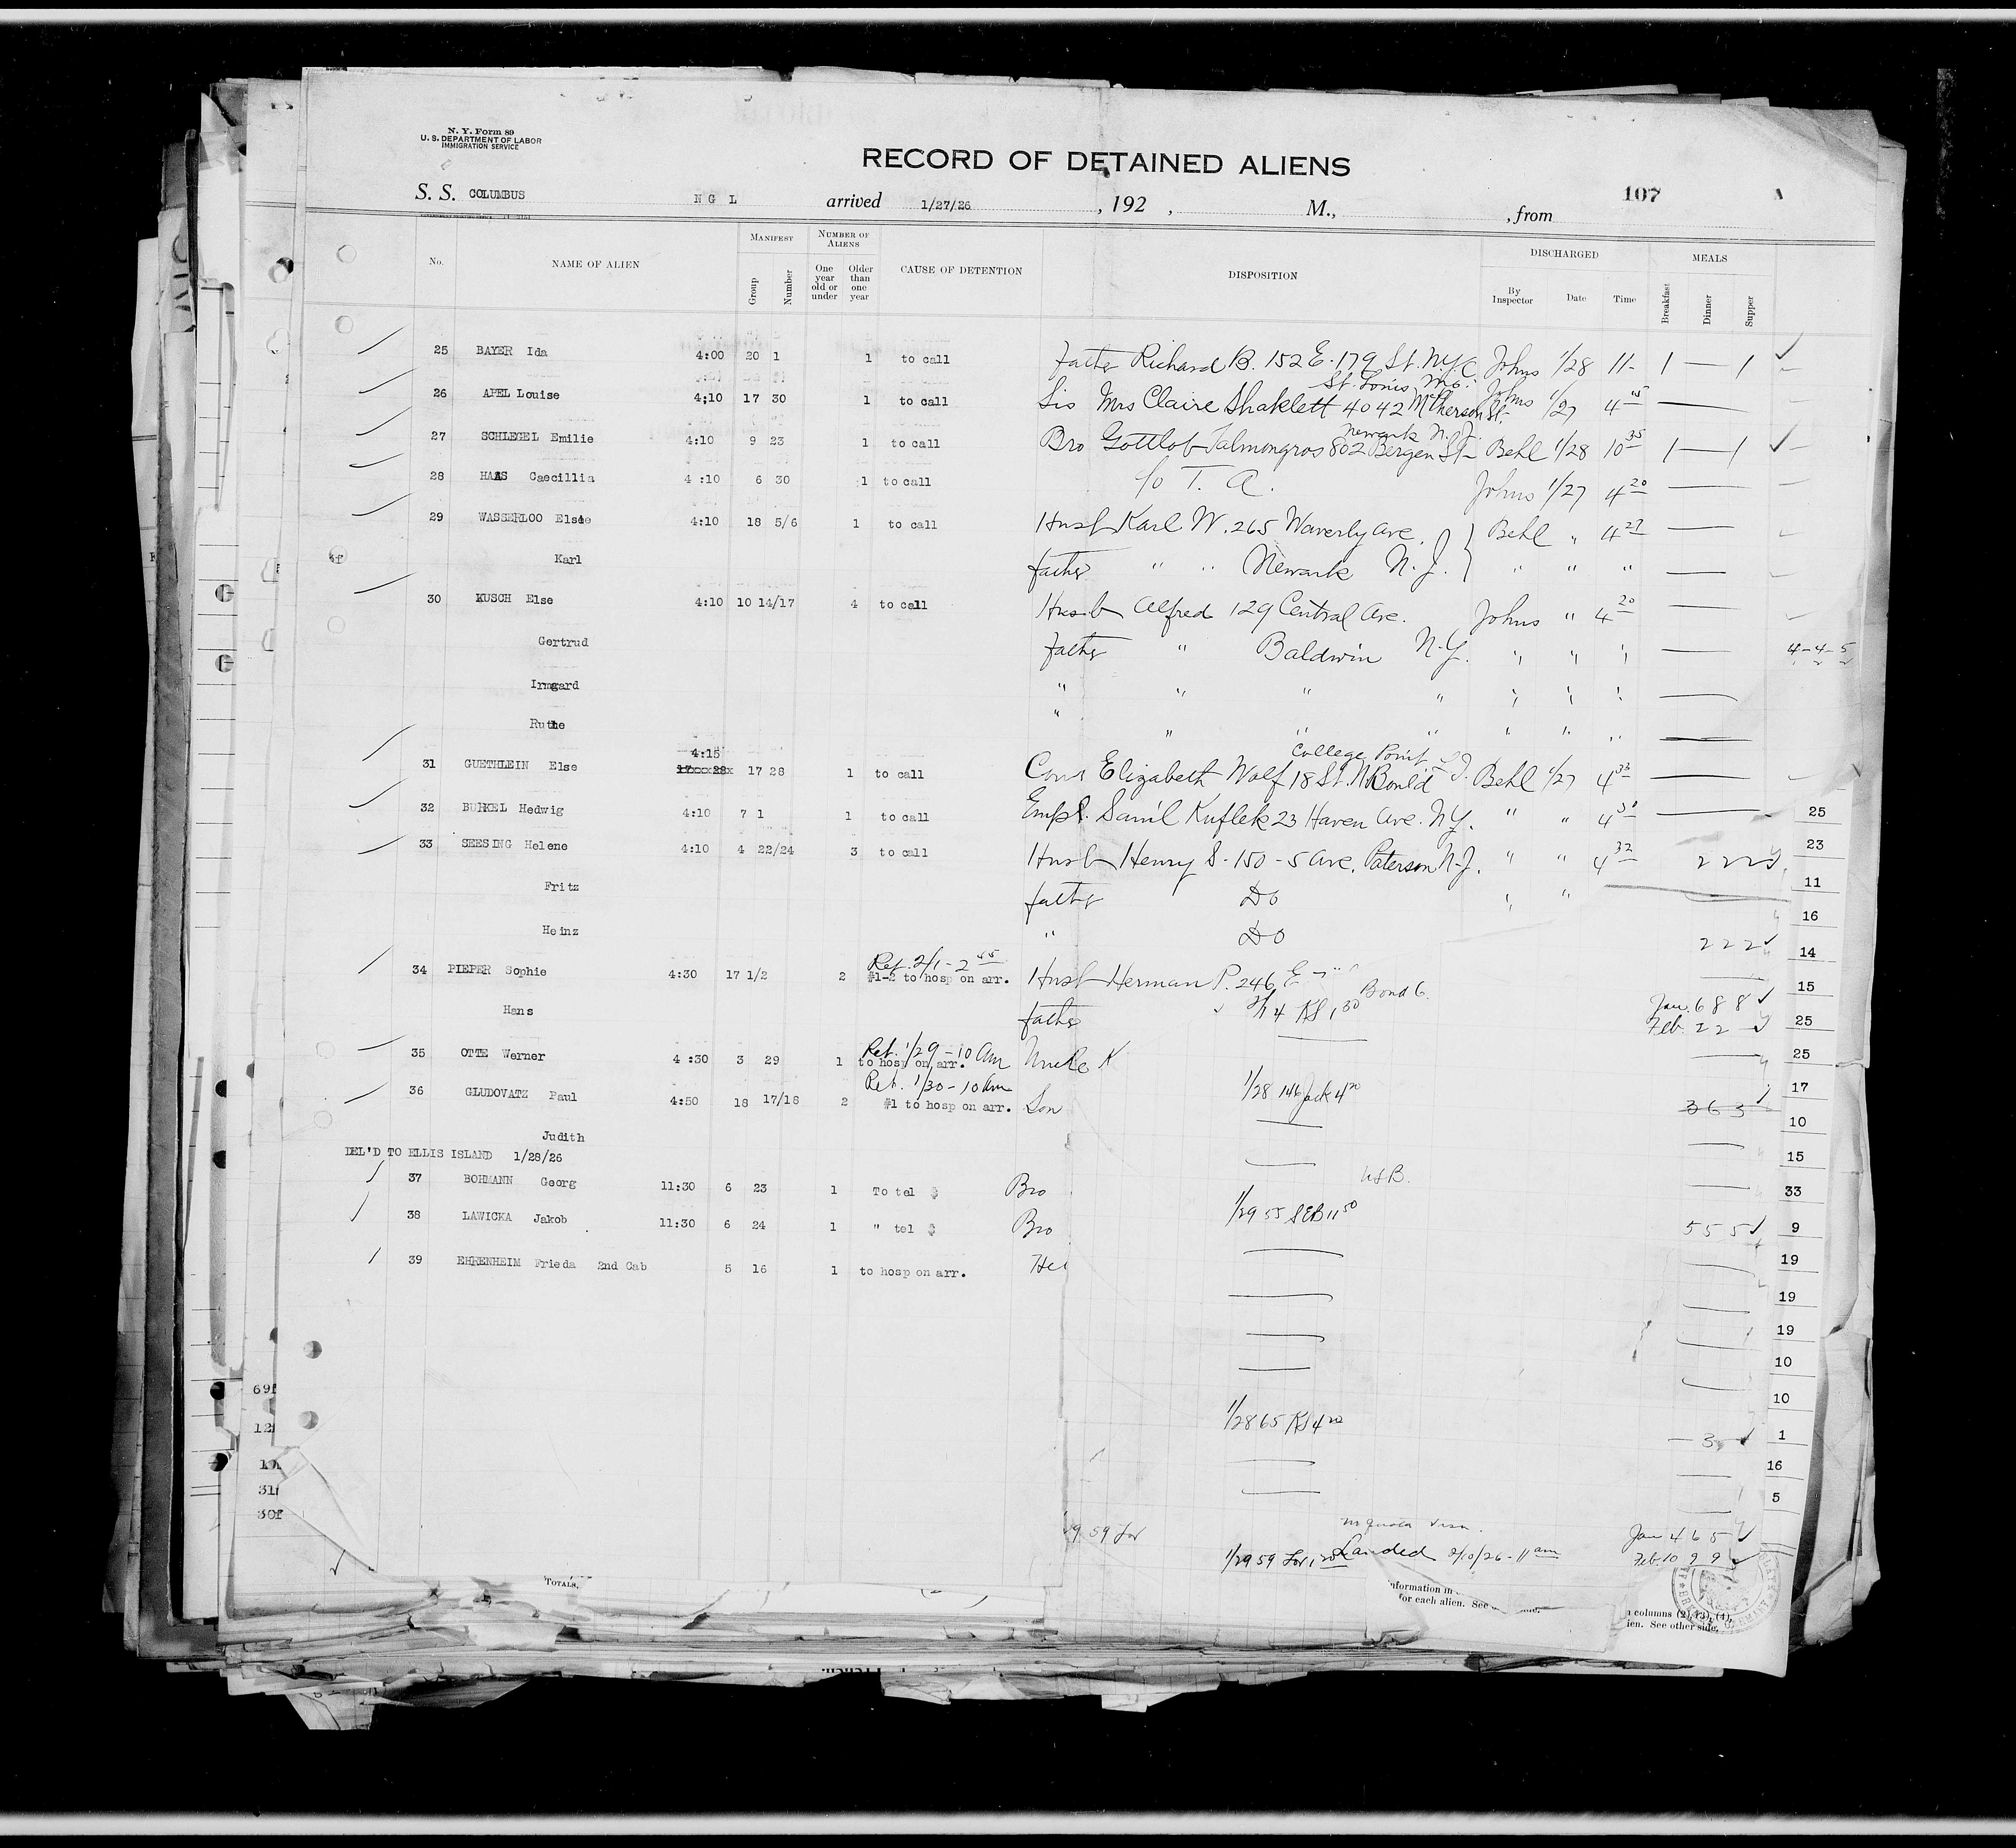 N. Y. Form 89
U. S. DEPARTMENT OF LABOR
IMMIGRATION SERVICE
RECORD OF DETAINED ALIENS
107
S. S. COLUMBUS N G L arrived 1/27/26 , 192 , M., , from
No. NAME OF ALIEN MANIFEST Group Number NUMBER OF ALIENS One year old or under Older than one year CAUSE OF DETENTION DISPOSITION DISCHARGED By Inspector Date Time MEALS Breakfast Dinner Supper
25 BAYER Ida 4:00 20 1 1 to call Father Richard B. 152 E. 179 St. N.Y.C. Johns 1/28 11- 1 — 1
St. Louis, Mo.
26 APEL Louise 4;10 17 30 1 to call Sis Mrs Claire Shaklett 4042 McPherson St. Johns 1/27 4 —
Newark N.J.
27 SCHLEGEL Emilie 4:10 9 23 1 to call Bro Gottlob 802 Bergen St- Behl 1/28 10 35 1 — 1
28 HAAS Caecillia 4 :10 6 30 1 to call c/o T. A. Johns 1/27 4 20 —
29 WASSERLOO Elsie 4:10 18 5/6 1 to call Husb Karl W. 265 Waverly Ave. Behl " 4 27 —
Karl Father " " Newark N.J. " " " —
30 KUSCH Else 4:10 10 14/17 4 to call Husb Alfred 129 Central Ave. Johns " 4 20 —
Gertrud Father " Baldwin N.Y. " " " — 4-4-5
Irmgard " " " " " " " —
Ruthe " " " " " " " —
4:15 College Point L.I.
31 GUETHLEIN Else 17 28 1 to call Cous Elizabeth Wolf 18 St. Behl 1/27 4 —
32 BURKEL Hedwig 4:10 7 1 1 to call Empl. Saml Kuflek 23 Haven Ave. N.Y. " " 4 — 25
33 SEESING Helene 4:10 4 22/24 3 to call Husb Henry S- 150 - 5 Ave. Paterson N.J. " " 4 32 2 2 2 23
Fritz Father Do " " 11
16
Heinz " Do 2 2 2 14
Ret. 2/1 - 2 45
34 PIEPER Sophie 4:30 17 1/2 2 #1-2 to hosp on arr. Husb Herman P. 246 E — 15
Bond
Hans Father Jan. 6 8 8
Feb. 2 2 — 25
Ret. 1/29 - 10 Am
35 OTTE Werner 4 :30 3 29 1 to hosp on arr. Uncle K — 25
Ret. 1/30 - 10 Am
36 GLUDOVATZ Paul 4:50 18 17/18 2 #1 to hosp on arr. Son 1/28 146 Jack 4 20 3 6 3 17
10
Judith
DEL'D TO ELLIS ISLAND 1/28/26 15
37 BOHMANN Georg 11:30 6 23 1 To tel $ Bro 33
38 LAWICKA Jakob 11:30 6 24 1 " tel $ Bro 1/29 55 SEB 11 50 5 5 5 9
39 EHRENHEIM Frieda 2nd Cab 5 16 1 to hosp on arr. 19
19
19
10
69f 10
12f 1/28 65 KS 4 20 — 3 1
16
31f 5
30f
9 59 For Jan 4 6 5
1/29 59 For Landed 2/10/26 - 11 am Feb. 10 9 9
TOTALS.
information in
for each alien. See
n columns (2), (3), (4),
ien. See other side.